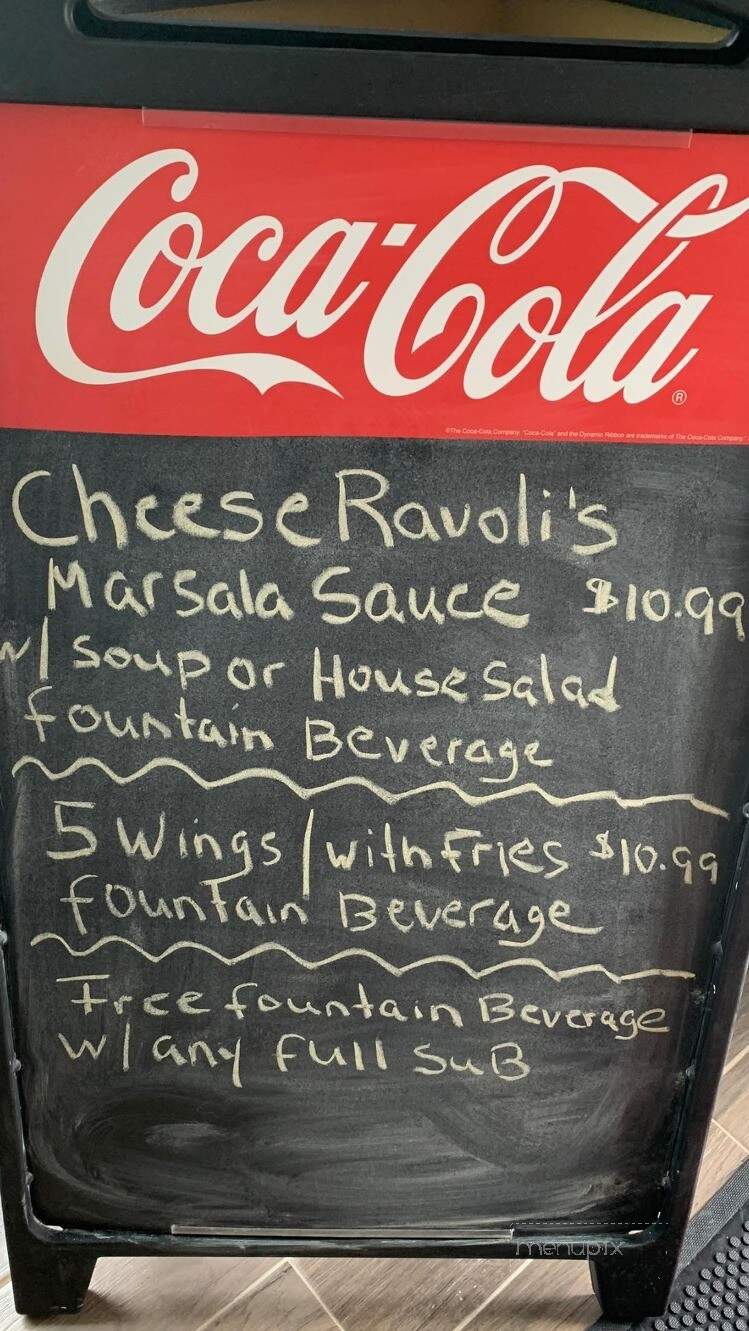 Coca-Cola
®
©The Coca-Cola Company. "Coca-Cola" and the Dynamic Ribbon are trademarks of The Coca-Cola Company.
Cheese Ravoli's
Marsala Sauce $10.99
w/ soup or House Salad
fountain Beverage
5 Wings / with Fries $10.99
fountain Beverage
Free fountain Beverage
w/ any full SuB
menupix